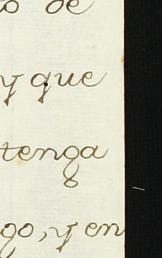 o de
y que
tenga
go, y en